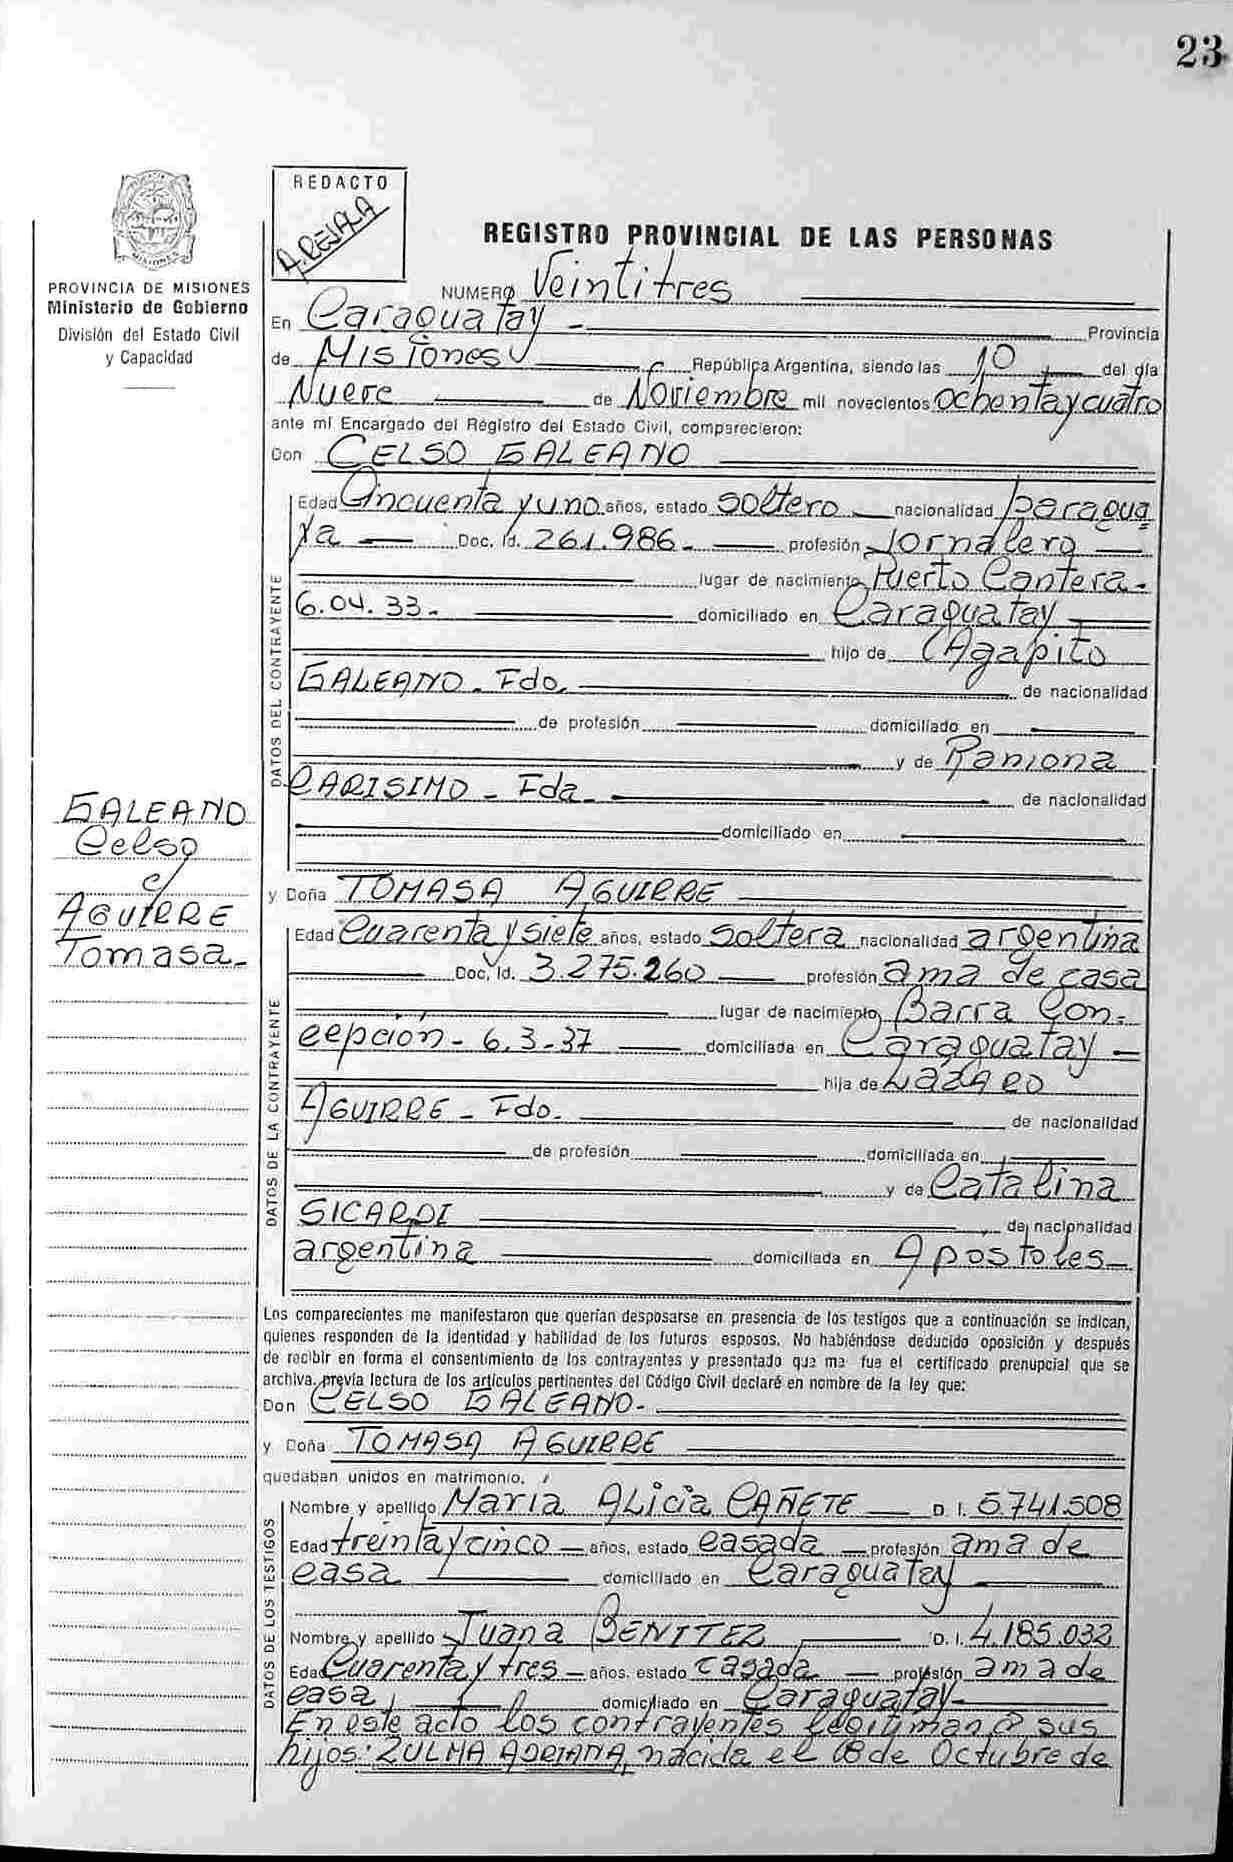 23
REDACTO
AREJALA
REGISTRO PROVINCIAL DE LAS PERSONAS
PROVINCIA DE MISIONES
Ministerio de Gobierno
División del Estado Civil
y Capacidad
NUMERO Veintitres
En Caraguatay - Provincia
de Misiones República Argentina, siendo las 10 del día
Nueve de Noviembre mil novecientos ochenta y cuatro
ante mí Encargado del Registro del Estado Civil, comparecieron:
Don CELSO GALEANO
DATOS DEL CONTRAYENTE
Edad Cincuenta y uno años, estado soltero nacionalidad paragua
ya Doc. Id. 261.986.- profesión Jornalero
lugar de nacimiento Puerto Cantera-
6.04.33- domiciliado en Caraguatay
hijo de Agapito
GALEANO - Fdo. de nacionalidad
de profesión domiciliado en
y de Ramona
CARISIMO - Fda- de nacionalidad
domiciliado en
GALEANO
Celso
c/
AGUIRRE
Tomasa-
y Doña TOMASA AGUIRRE
DATOS DE LA CONTRAYENTE
Edad Cuarenta y siete años, estado Soltera nacionalidad argentina
Doc. Id. 3.275.260 profesión ama de casa
lugar de nacimiento Barra Con-
cepción - 6.3-37 domiciliada en Caraguatay -
hija de LAZARO
AGUIRRE - Fdo. de nacionalidad
de profesión domiciliada en
y de Catalina
SICARDI de nacionalidad
argentina domiciliada en Apostoles-
Los comparecientes me manifestaron que querían desposarse en presencia de los testigos que a continuación se indican,
quienes responden de la identidad y habilidad de los futuros esposos. No habiéndose deducido oposición y después
de recibir en forma el consentimiento de los contrayentes y presentado que me fue el certificado prenupcial que se
archiva, previa lectura de los artículos pertinentes del Código Civil declaré en nombre de la ley que:
Don CELSO GALEANO-
y Doña TOMASA AGUIRRE
quedaban unidos en matrimonio.
DATOS DE LOS TESTIGOS
Nombre y apellido Maria Alicia CAÑETE D. I. 5.741.508
Edad treinta y cinco años, estado casada profesión ama de
casa domiciliado en Caraguatay
Nombre y apellido Juana BENITEZ D. I. 4.185.032
Edad Cuarenta y tres años, estado casada profesión ama de
casa domiciliado en Caraguatay-
En este acto los contrayentes legitiman a sus
hijos: ZULMA ADRIANA, nacida el 08 de Octubre de